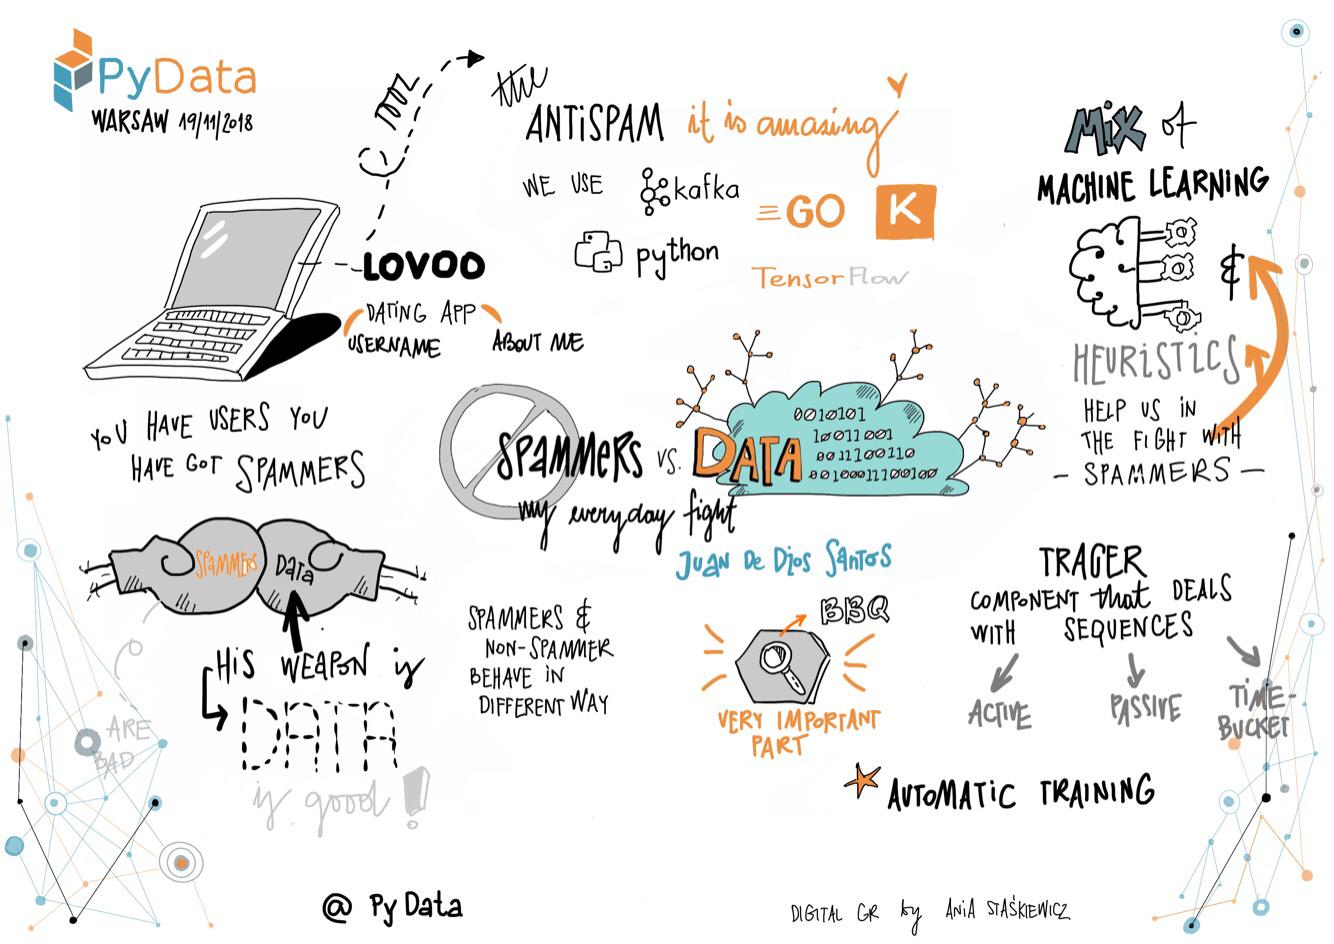 PyData
WARSAW 19/11/2018
the
ANTISPAM it is amazing
WE USE kafka
GO K
python
TensorFlow
LOVOO
DATING APP
USERNAME ABOUT ME
MIX of
MACHINE LEARNING
&
HEURISTICS
HELP US IN
THE FIGHT WITH
- SPAMMERS -
YOU HAVE USERS YOU
HAVE GOT SPAMMERS
SPAMMERS vs. DATA
0010101
10011001
0011100110
00100011100100
my everyday fight
JUAN DE DIOS SANTOS
SPAMMERS DATA
HIS WEAPON is
DATA
is good!
ARE
BAD
SPAMMERS &
NON-SPAMMER
BEHAVE IN
DIFFERENT WAY
BBQ
VERY IMPORTANT
PART
TRAGER
COMPONENT that DEALS
WITH SEQUENCES
ACTIVE
PASSIVE
TIME-
BUCKET
AUTOMATIC TRAINING
@ PyData
DIGITAL GR by ANIA STAŚKIEWICZ